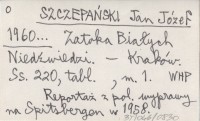 O
SZCZEPAŃSKI Jan Józef
1960... Zatoka Białych
Niedźwiedzi. – Kraków.
Ss. 220, tabl. , m. 1. WHP
Reportaż z pol. wyprawy
na Spitsbergen w 1958.